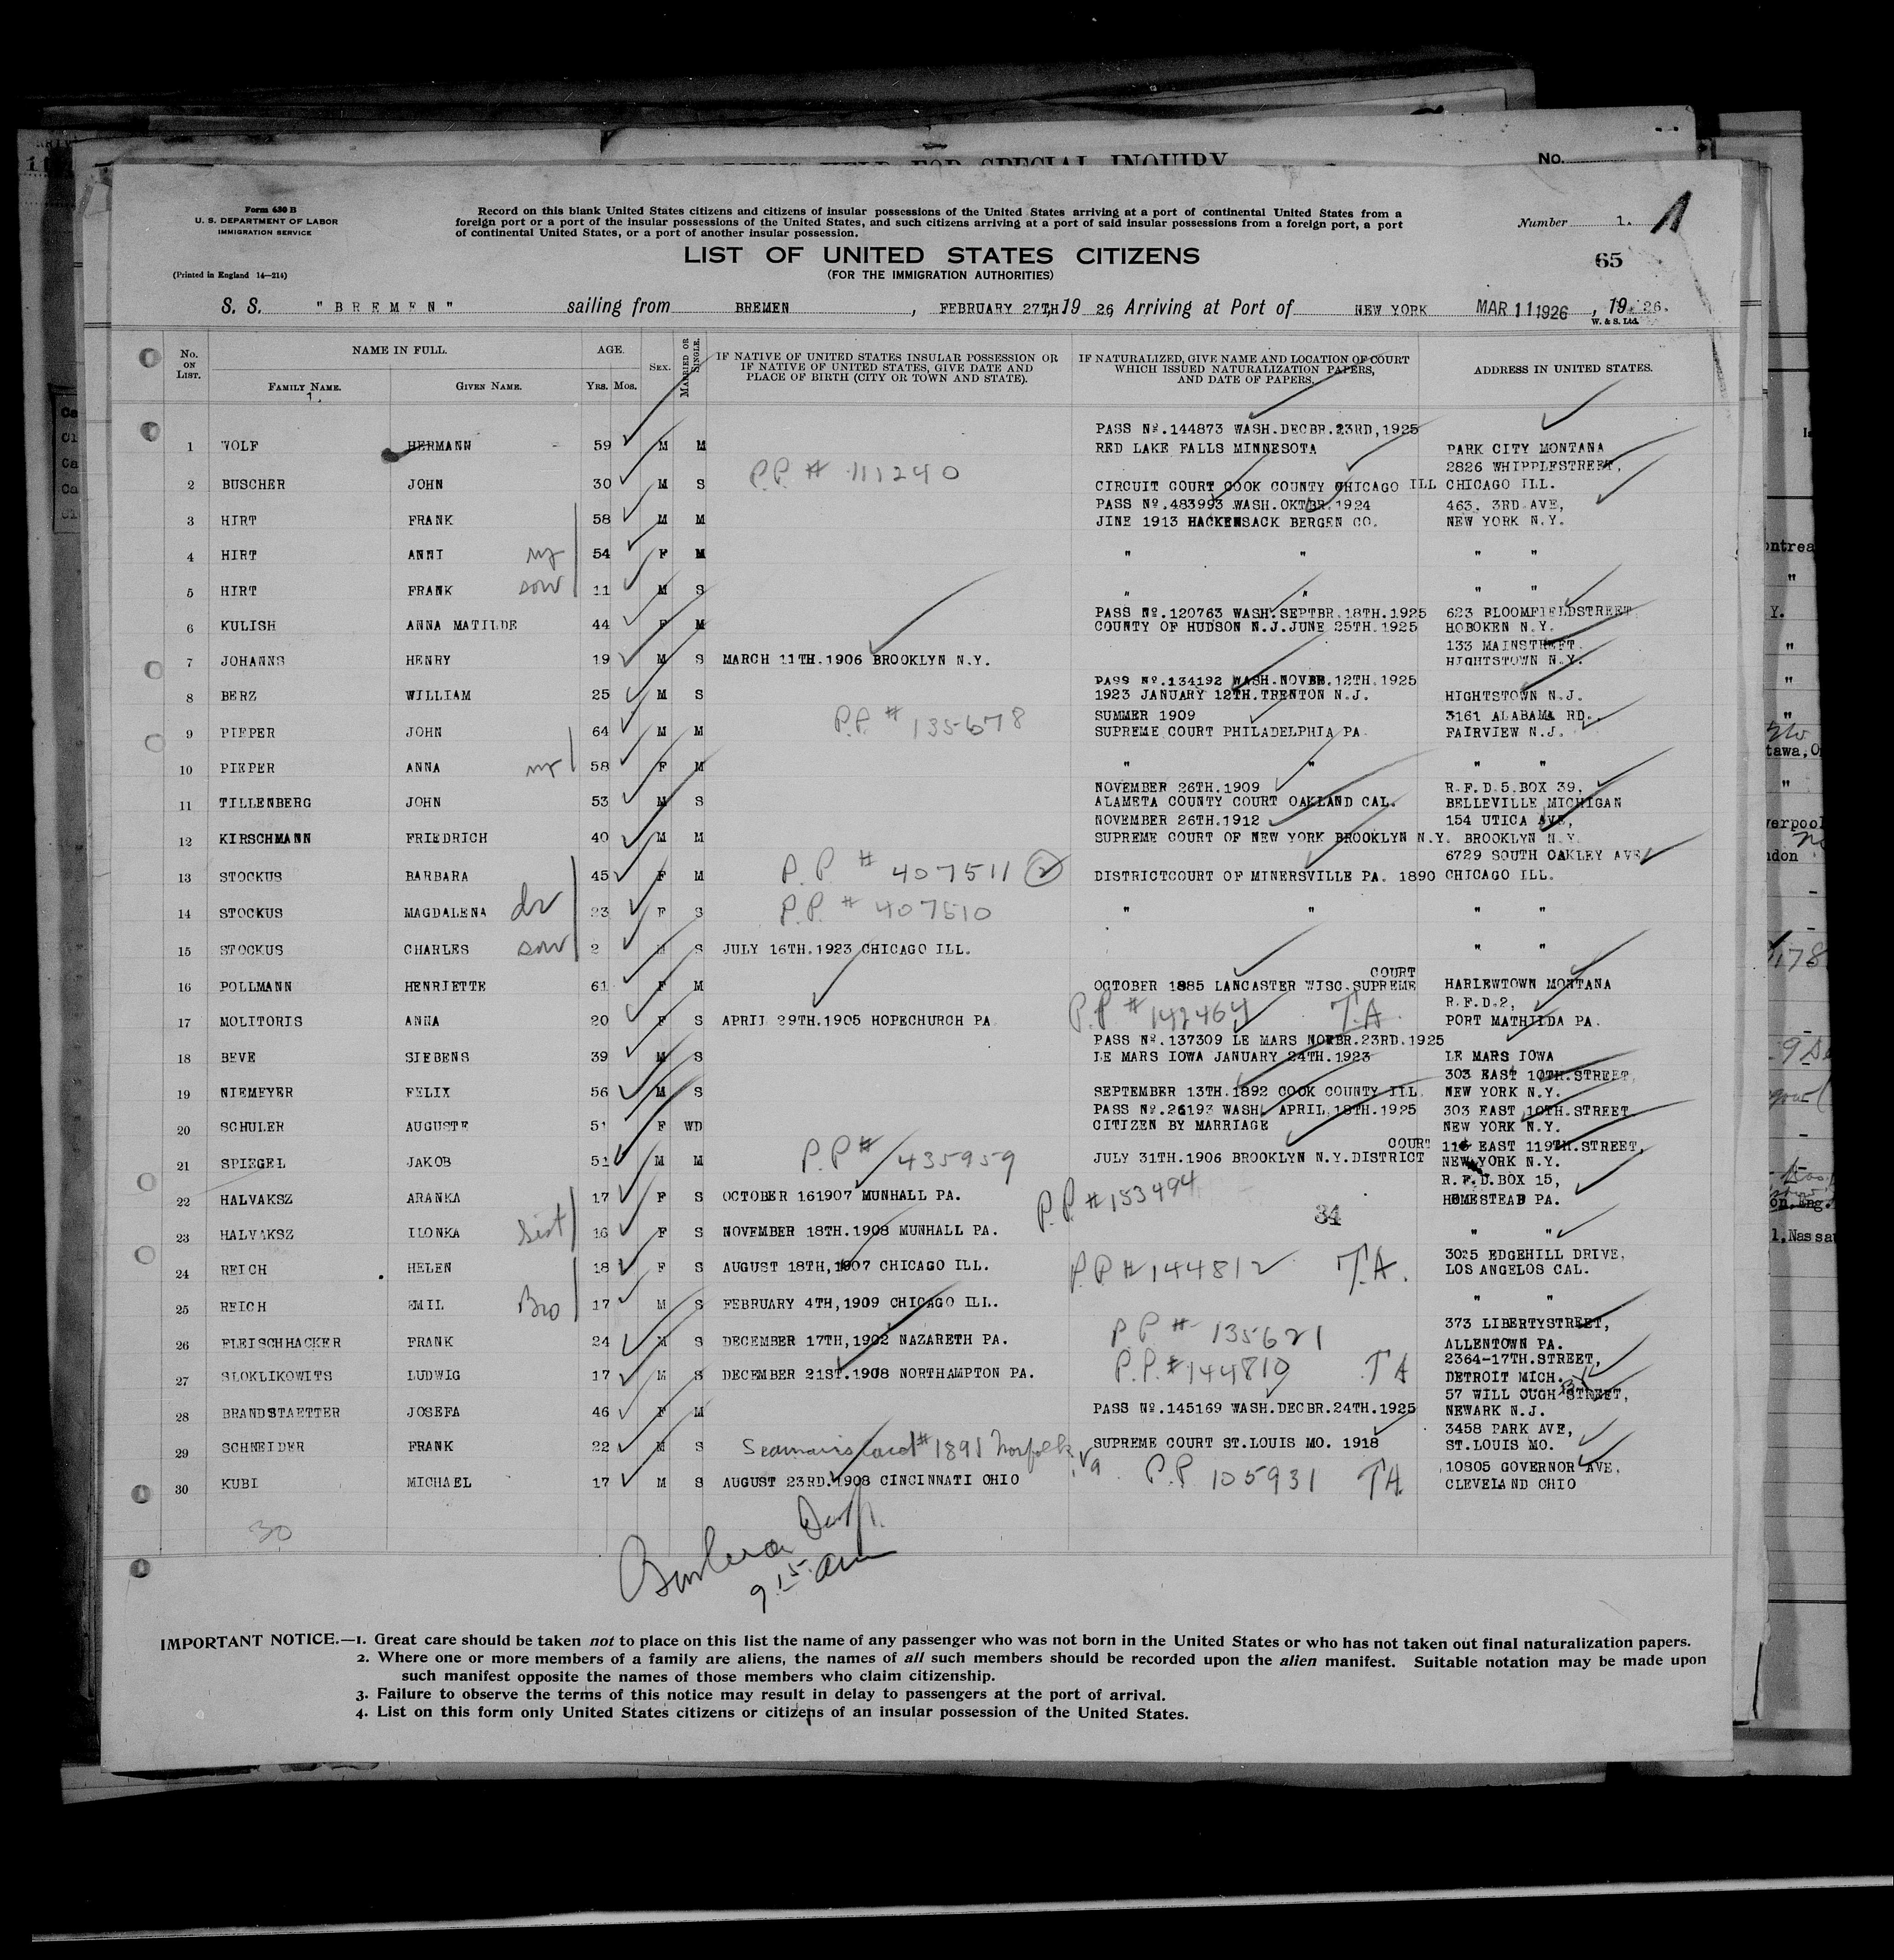 HELD FOR SPECIAL INQUIRY
No.
Form 630 B
U. S. DEPARTMENT OF LABOR
IMMIGRATION SERVICE
(Printed in England 14—214)
Record on this blank United States citizens and citizens of insular possessions of the United States arriving at a port of continental United States from a
foreign port or a port of the insular possessions of the United States, and such citizens arriving at a port of said insular possessions from a foreign port, a port
of continental United States, or a port of another insular possession.
Number 1.
LIST OF UNITED STATES CITIZENS
(FOR THE IMMIGRATION AUTHORITIES)
65
S. S. "BREMEN" sailing from BREMEN, FEBRUARY 27TH, 19 26 Arriving at Port of NEW YORK MAR 11 1926, 19 26.
W. & S. Ltd.
No. ON LIST. NAME IN FULL. FAMILY NAME. GIVEN NAME. AGE. YRS. MOS. SEX. MARRIED OR SINGLE. IF NATIVE OF UNITED STATES INSULAR POSSESSION OR IF NATIVE OF UNITED STATES, GIVE DATE AND PLACE OF BIRTH (CITY OR TOWN AND STATE). IF NATURALIZED, GIVE NAME AND LOCATION OF COURT WHICH ISSUED NATURALIZATION PAPERS, AND DATE OF PAPERS. ADDRESS IN UNITED STATES.
1.
PASS Nº.144873 WASH.DECBR.23RD,1925
1 WOLF HERMANN 59 M M RED LAKE FALLS MINNESOTA PARK CITY MONTANA
P.P. # 111240 2826 WHIPPLESTREET,
2 BUSCHER JOHN 30 M S CIRCUIT COURT COOK COUNTY CHICAGO ILL CHICAGO ILL.
PASS Nº.483993 WASH.OKTBR.1924 463. 3RD AVE,
3 HIRT FRANK 58 M M JINE 1913 HACKENSACK BERGEN CO. NEW YORK N.Y.
4 HIRT ANNI 54 F M " " " "
5 HIRT FRANK son 11 M S " " " "
PASS Nº.120763 WASH.SEPTBR.18TH.1925 623 BLOOMFIELDSTREET,
6 KULISH ANNA MATILDE 44 F M COUNTY OF HUDSON N.J.JUNE 25TH.1925 HOBOKEN N.Y.
133 MAINSTREET.
7 JOHANNS HENRY 19 M S MARCH 11TH.1906 BROOKLYN N.Y. HIGHTSTOWN N.Y.
PASS Nº.134192 WASH.NOVBR.12TH.1925
8 BERZ WILLIAM 25 M S 1923 JANUARY 12TH.TRENTON N.J. HIGHTSTOWN N.J.
P.P. # 135678 SUMMER 1909 3161 ALABAMA RD.,
9 PIEPER JOHN 64 M M SUPREME COURT PHILADELPHIA PA. FAIRVIEW N.J.
10 PIEPER ANNA 58 F M " " " "
NOVEMBER 26TH.1909 R.F.D.5.BOX 39,
11 TILLENBERG JOHN 53 M S ALAMETA COUNTY COURT OAKLAND CAL. BELLEVILLE MICHIGAN
NOVEMBER 26TH.1912 154 UTICA AVE,
12 KIRSCHMANN FRIEDRICH 40 M M SUPREME COURT OF NEW YORK BROOKLYN N.Y. BROOKLYN N.Y.
6729 SOUTH OAKLEY AVE
13 STOCKUS BARBARA 45 F M P.P. # 407511 2 DISTRICTCOURT OF MINERSVILLE PA. 1890 CHICAGO ILL.
14 STOCKUS MAGDALENA dr 23 F S P.P. # 407510 " " " "
15 STOCKUS CHARLES son 2 M S JULY 16TH.1923 CHICAGO ILL. " "
COURT
16 POLLMANN HENRIETTE 61 F M OCTOBER 1885 LANCASTER WISC.SUPREME HARLEWTOWN MONTANA
P.P # 142464 T.A. R.F.D.2,
17 MOLITORIS ANNA 20 F S APRIL 29TH.1905 HOPECHURCH PA. PORT MATHILDA PA.
PASS Nº.137309 LE MARS NOVBR.23RD.1925
18 BEVE SIEBENS 39 M S LE MARS IOWA JANUARY 24TH.1923 LE MARS IOWA
303 EAST 10TH.STREET,
19 NIEMEYER FELIX 56 M S SEPTEMBER 13TH.1892 COOK COUNTY ILL. NEW YORK N.Y.
PASS Nº.26193 WASH. APRIL 18TH.1925 303 EAST 10TH.STREET
20 SCHULER AUGUSTE 51 F WD CITIZEN BY MARRIAGE NEW YORK N.Y.
COURT 116 EAST 119TH.STREET,
21 SPIEGEL JAKOB 51 M M P.P # 435959 JULY 31TH.1906 BROOKLYN N.Y.DISTRICT NEW YORK N.Y.
R.F.D.BOX 15,
22 HALVAKSZ ARANKA 17 F S OCTOBER 161907 MUNHALL PA. P.P. # 153494 HOMESTEAD PA.
34
23 HALVAKSZ ILONKA Sist 16 F S NOVEMBER 18TH.1908 MUNHALL PA. " "
3025 EDGEHILL DRIVE,
24 REICH HELEN 18 F S AUGUST 18TH,1907 CHICAGO ILL. P.P # 144812 T.A. LOS ANGELOS CAL.
25 REICH EMIL Bro 17 M S FEBRUARY 4TH,1909 CHICAGO ILL. " "
373 LIBERTYSTREET,
26 FLEISCHHACKER FRANK 24 M S DECEMBER 17TH,1902 NAZARETH PA. P.P # 135621 ALLENTOWN PA.
2364-17TH.STREET,
27 SLOKLIKOWITS LUDWIG 17 M S DECEMBER 21ST.1908 NORTHAMPTON PA. P.P. # 144810 TA DETROIT MICH.
57 WILL OUGH STREET,
28 BRANDSTAETTER JOSEFA 46 F M PASS Nº.145169 WASH.DECBR.24TH.1925 NEWARK N.J.
3458 PARK AVE,
29 SCHNEIDER FRANK 22 M S Seamans card # 1891 Norfolk, Va. SUPREME COURT ST.LOUIS MO. 1918 ST.LOUIS MO.
10805 GOVERNOR AVE,
30 KUBI MICHAEL 17 M S AUGUST 23RD.1908 CINCINNATI OHIO P.P 105931 TA. CLEVELAND OHIO
30
9.15 am
IMPORTANT NOTICE.—1. Great care should be taken not to place on this list the name of any passenger who was not born in the United States or who has not taken out final naturalization papers.
2. Where one or more members of a family are aliens, the names of all such members should be recorded upon the alien manifest. Suitable notation may be made upon
such manifest opposite the names of those members who claim citizenship.
3. Failure to observe the terms of this notice may result in delay to passengers at the port of arrival.
4. List on this form only United States citizens or citizens of an insular possession of the United States.